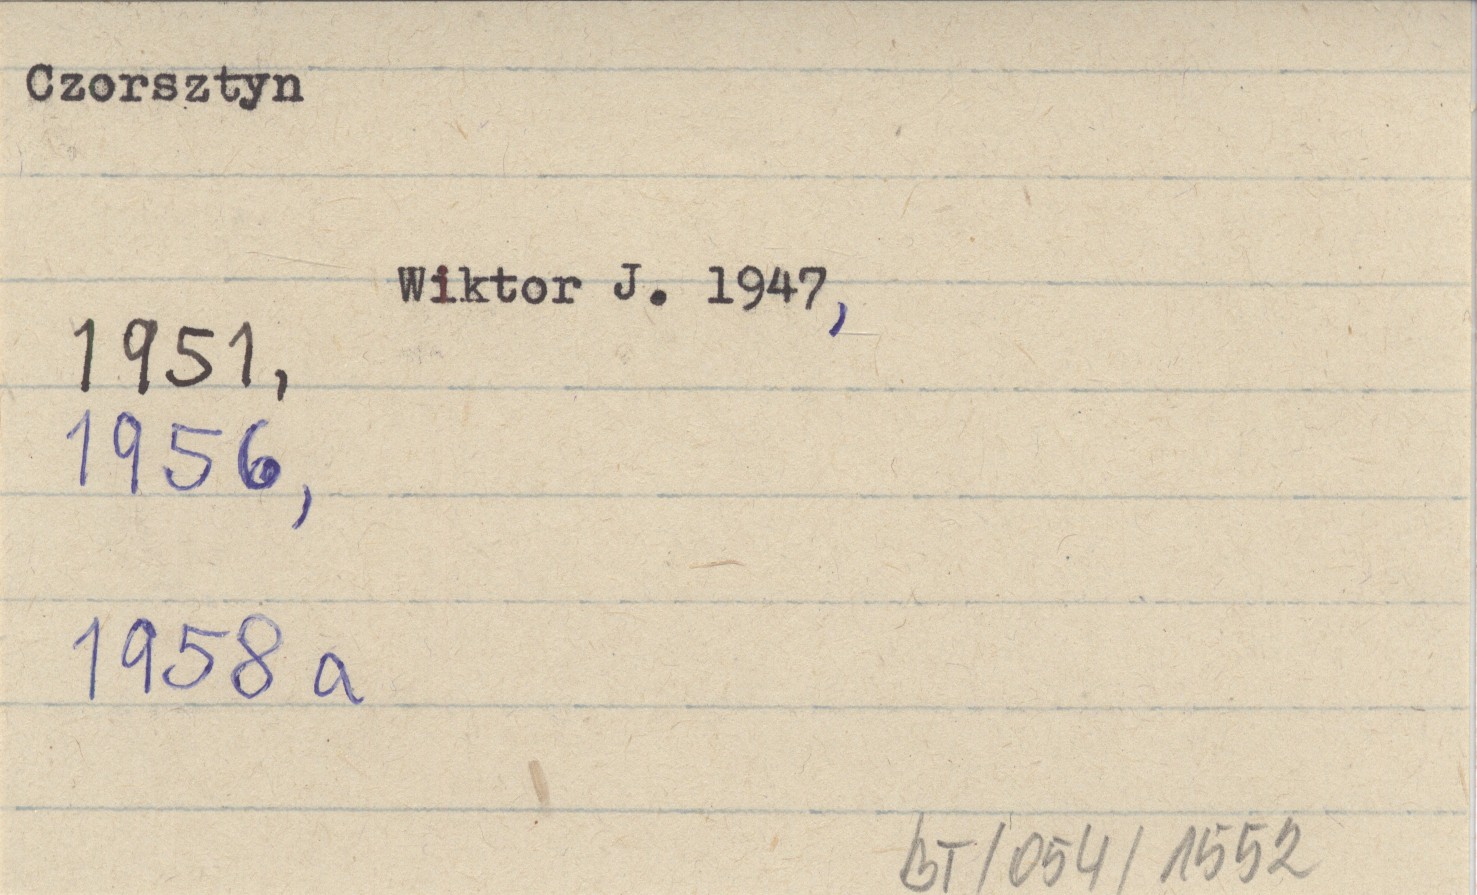 Czorsztyn
Wiktor J. 1947,
1951,
1956,
1958 a
BT/054/1552